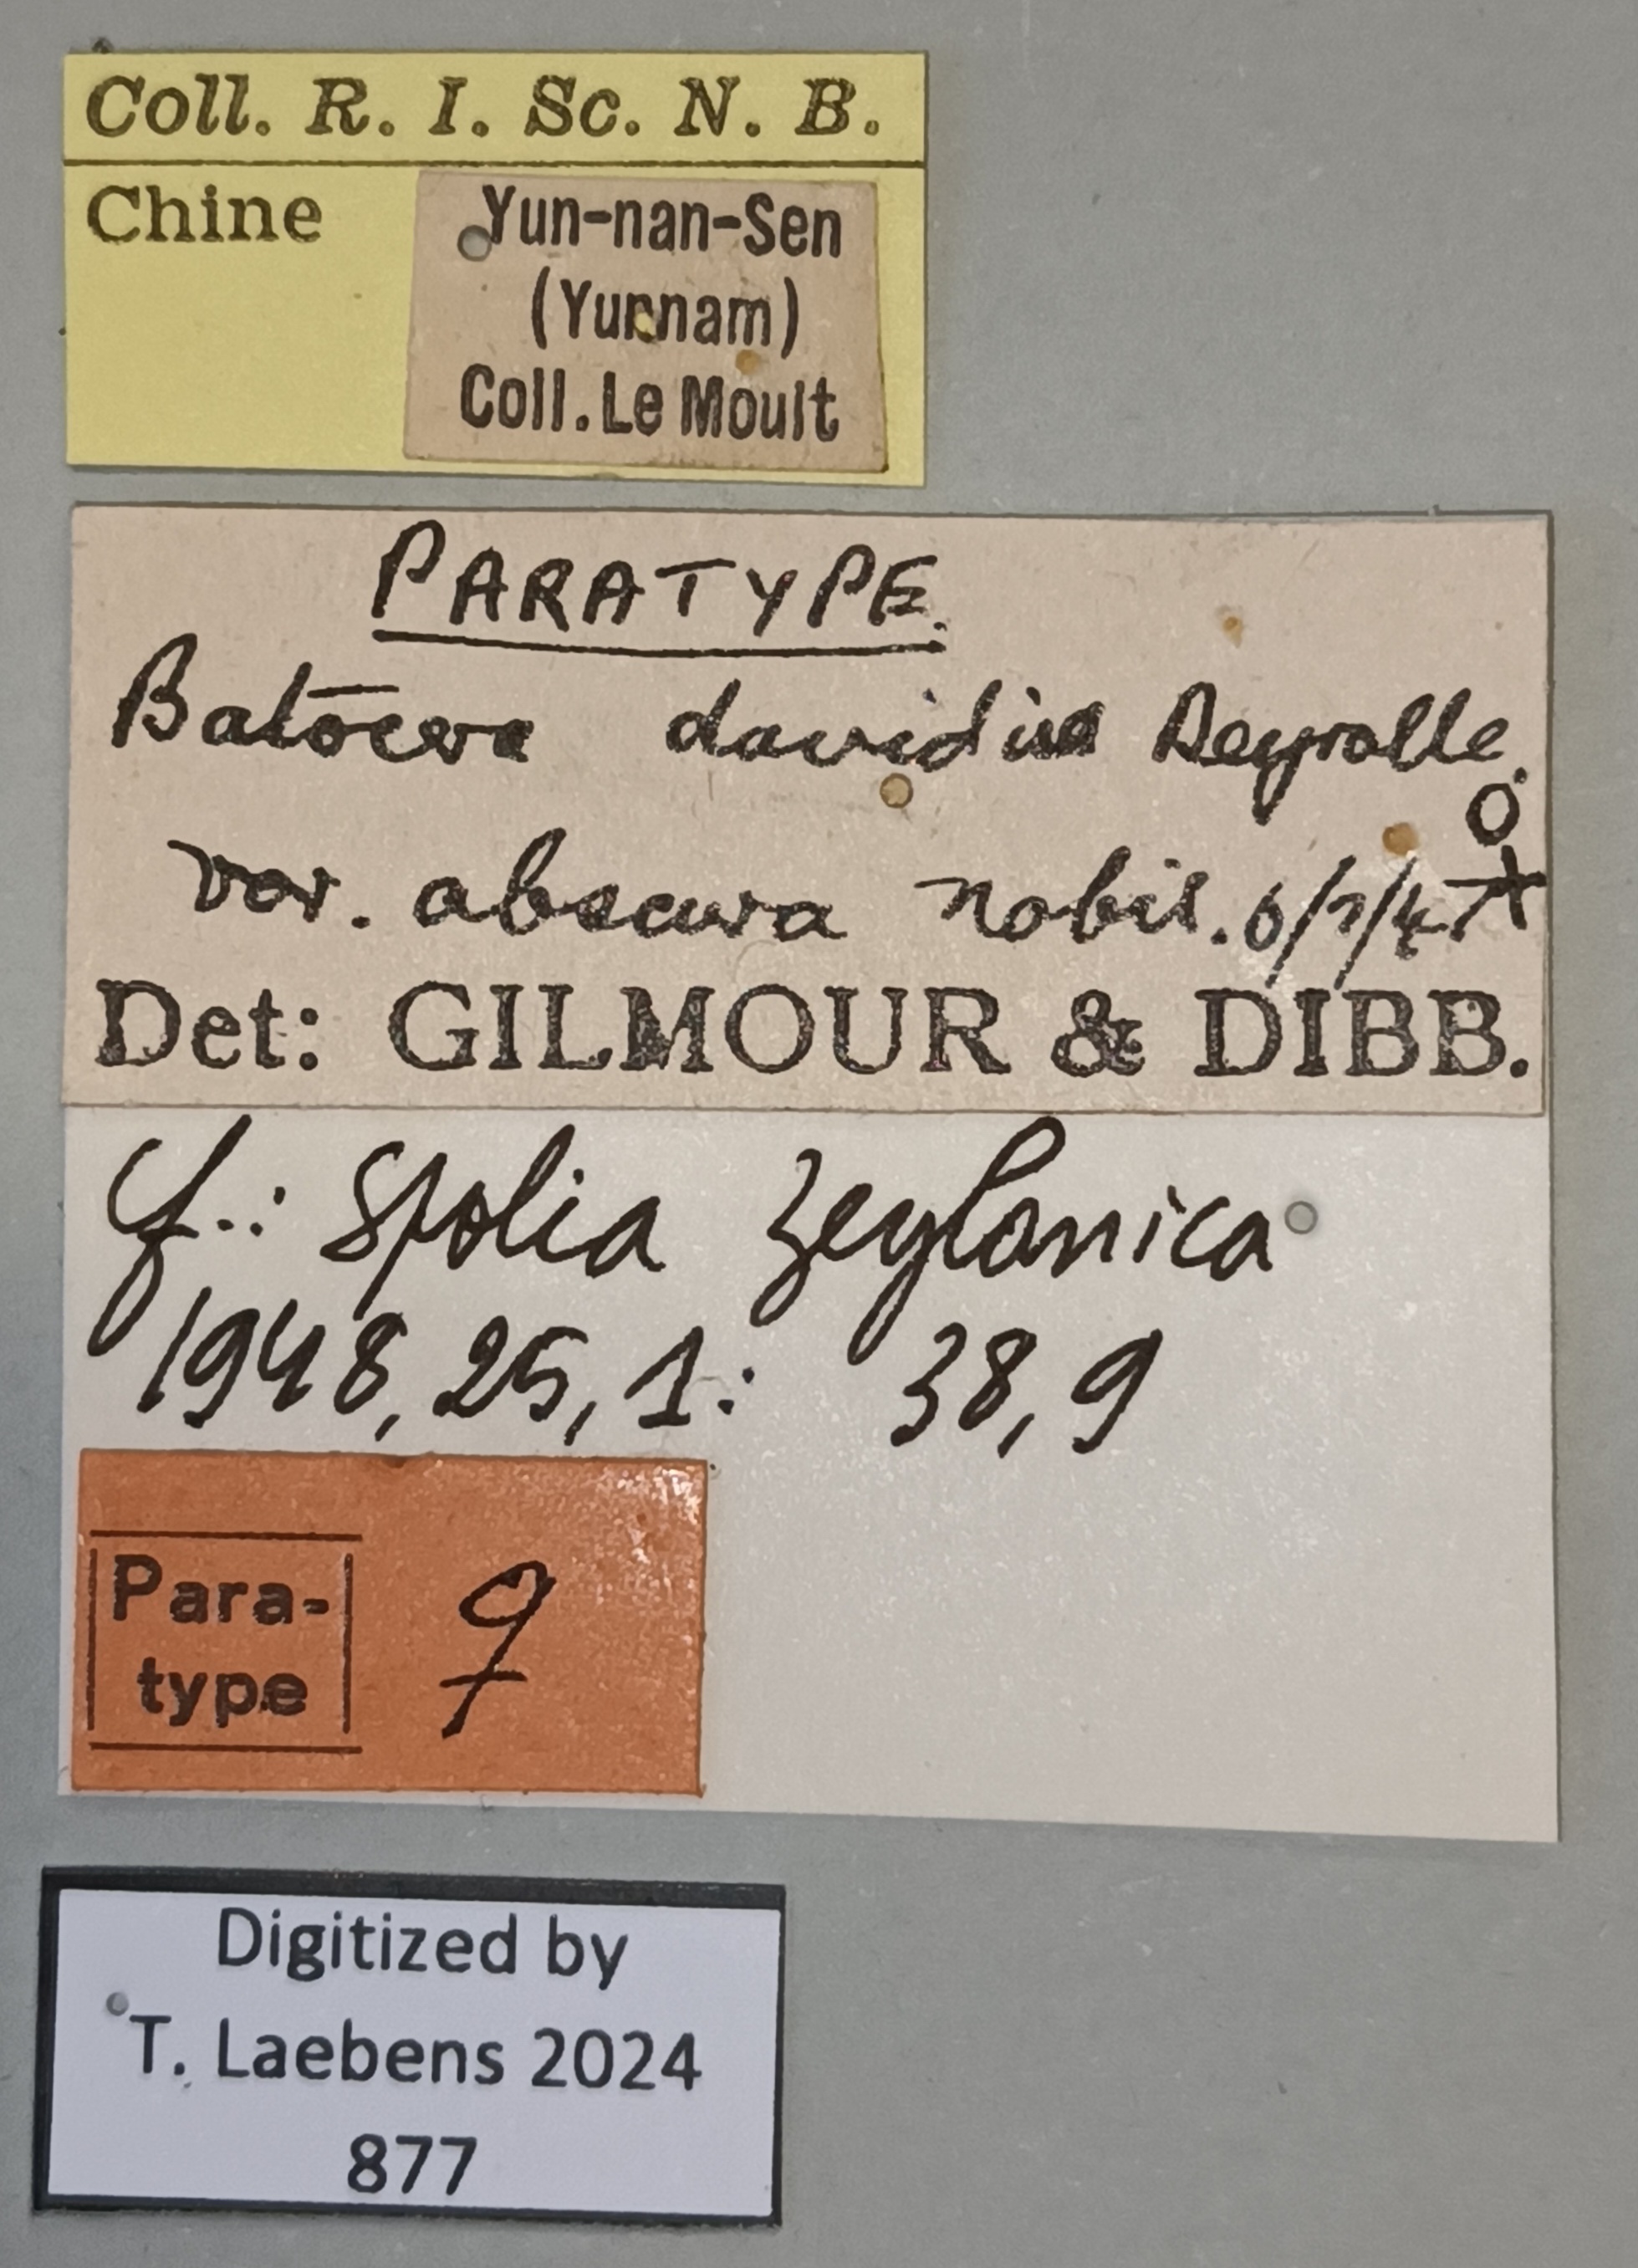 Coll. R. I. Sc. N. B.
Chine
Yun-nan-Sen
(Yunnam)
Coll. Le Moult
PARATYPE.
Batocera Deyrolle.
var. obscura nobis. 6/7/47 ♀
Det: GILMOUR & DIBB.
cf.: Spolia Zeylanica
1948, 25, 1: 38, 9
Para-
type
♀
Digitized by
T. Laebens 2024
877